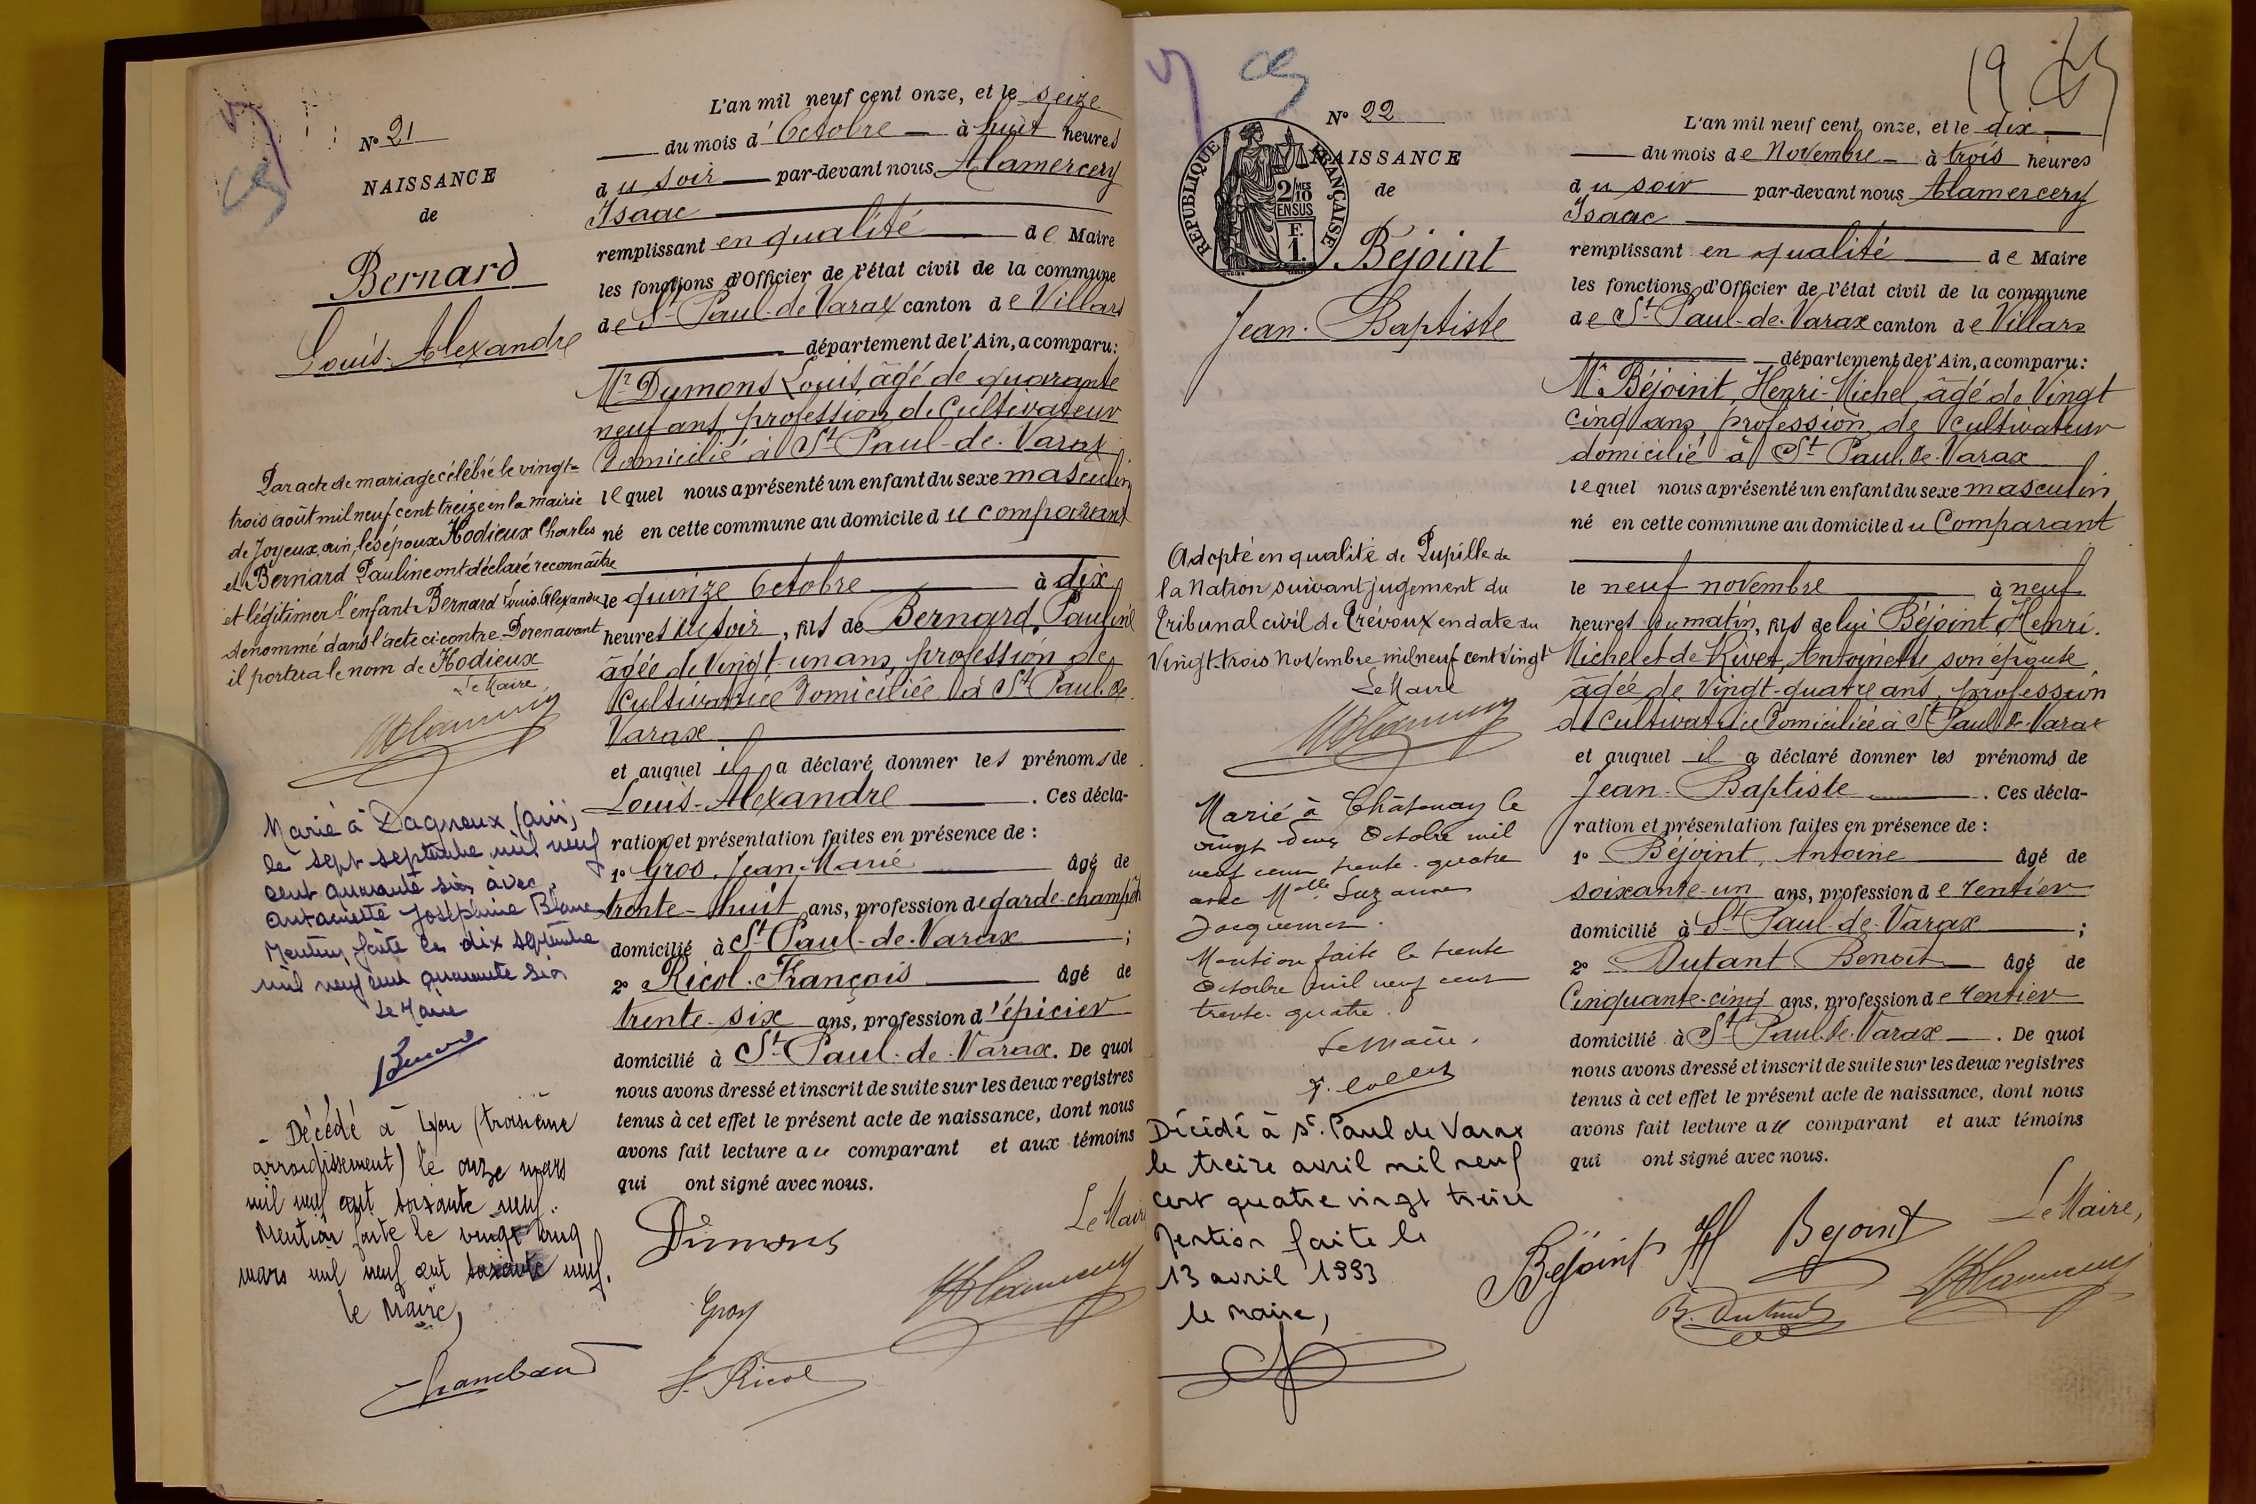 N° 21
NAISSANCE
de
Bernard
Louis-Alexandre
Par acte de mariage célébré le vingt-
trois août mil neuf cent treize en la mairie
de Joyeux, ain, les époux Hodieux Charles
et Bernard Pauline ont déclaré reconnaître
et légitimer l'enfant Bernard Louis Alexandre
dénommé dans l'acte ci contre. Dorenavant
il portera le nom de Hodieux
Le Maire
Marié à Dagneux (ain)
le sept septembre mil neuf
cent quarante six avec
Antoinette Joséphine Blanc
Mention faite le dix septembre
mil neuf cent quarante six
Le Maire
- Décédé à Lyon (troisième
arrondissement) le onze mars
mil neuf cent soixante neuf.
Mention faite le vingt cinq
mars mil neuf cent soixante neuf.
le Maire,
L'an mil neuf cent onze, et le seize
du mois d'Octobre à huit heures
du soir par-devant nous Alamercery
Isaac
remplissant en qualité de Maire
les fonctions d'Officier de l'état civil de la commune
de St Paul-de-Varax canton de Villars
département de l'Ain, a comparu:
Mr Dumons Louis, âgé de quarante
neuf ans, profession de Cultivateur
domicilié à St Paul-de-Varax
lequel nous a présenté un enfant du sexe masculin
né en cette commune au domicile du comparant
le quinze Octobre à dix
heures du soir, fils de Bernard, Pauline
âgée de Vingt-un ans, profession de
Cultivatrice domiciliée à St Paul-de-
Varax
et auquel il a déclaré donner les prénoms de
Louis-Alexandre. Ces décla-
ration et présentation faites en présence de :
1° Gros, Jean-Marie âgé de
trente-huit ans, profession de garde-champêtre
domicilié à St Paul-de-Varax ;
2° Ricol. François âgé de
trente-six ans, profession d'épicier
domicilié à St Paul-de-Varax. De quoi
nous avons dressé et inscrit de suite sur les deux registres
tenus à cet effet le présent acte de naissance, dont nous
avons fait lecture au comparant et aux témoins
qui ont signé avec nous.
Le Maire
Dumons
Gros
F. Ricol
19
N° 22
NAISSANCE
de
RÉPUBLIQUE FRANÇAISE
2/10 MES
EN SUS
F.
1.
Béjoint
Jean-Baptiste
Adopté en qualité de Pupille de
la Nation suivant jugement du
Tribunal civil de Trévoux en date du
Vingt-trois Novembre mil neuf cent vingt
Le Maire
Marié à Châtenay le
vingt deux Octobre mil
neuf cent trente-quatre
avec Melle Suzanne
Jacquemet.
Mention faite le trente
Octobre mil neuf cent
trente-quatre.
Le Maire.
Décédé à St. Paul de Varax
le treize avril mil neuf
cent quatre vingt treize
Mention faite le
13 avril 1993
le Maire,
L'an mil neuf cent onze, et le dix
du mois de Novembre à trois heures
du soir par-devant nous Alamercery
Isaac
remplissant en qualité de Maire
les fonctions d'Officier de l'état civil de la commune
de St Paul-de-Varax canton de Villars
département de l'Ain, a comparu:
Mr Béjoint, Henri-Michel, âgé de Vingt
cinq ans, profession de Cultivateur
domicilié à St Paul-de-Varax
lequel nous a présenté un enfant du sexe masculin
né en cette commune au domicile du Comparant
le neuf novembre à neuf
heures du matin, fils de lui Béjoint Henri.
Michel et de Rivet, Antoinette son épouse
âgée de Vingt-quatre ans, profession
de Cultivatrice domiciliée à St Paul de Varax
et auquel il a déclaré donner les prénoms de
Jean-Baptiste. Ces décla-
ration et présentation faites en présence de :
1° Béjoint, Antoine âgé de
soixante-un ans, profession de rentier
domicilié à St Paul-de-Varax ;
2° Dutant Benoît âgé de
Cinquante-cinq ans, profession de rentier
domicilié à St Paul-de-Varax. De quoi
nous avons dressé et inscrit de suite sur les deux registres
tenus à cet effet le présent acte de naissance, dont nous
avons fait lecture au comparant et aux témoins
qui ont signé avec nous.
Le Maire,
Béjoint H Bejoint
B. Dutant